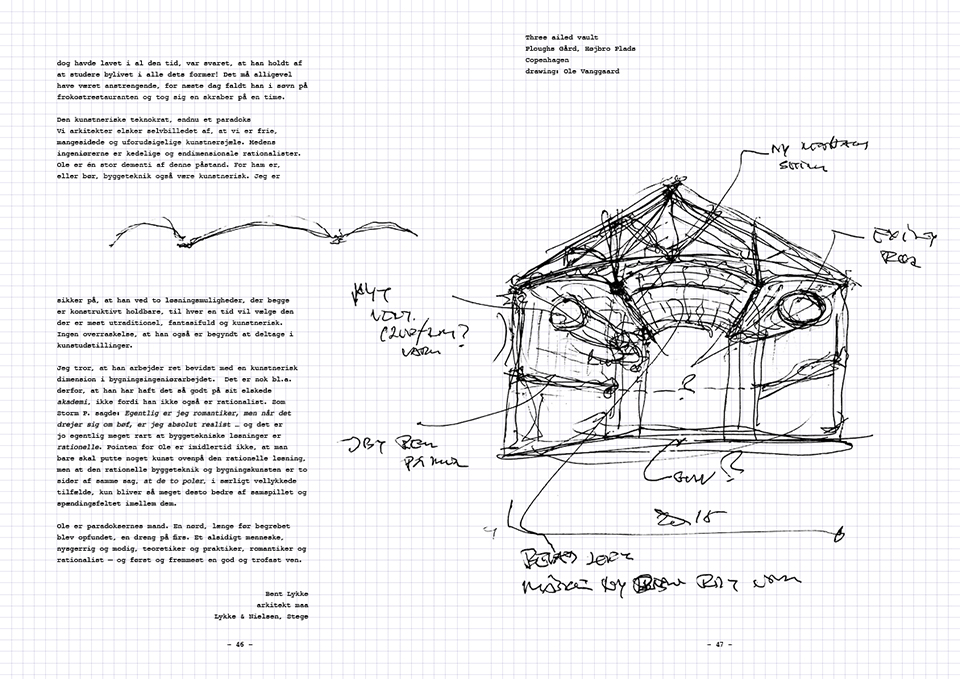 dog havde lavet i al den tid, var svaret, at han holdt af
at studere bylivet i alle dets former! Det må alligevel
have været anstrengende, for næste dag faldt han i søvn på
frokostrestauranten og tog sig en skraber på en time.
Den kunstneriske teknokrat, endnu et paradoks
Vi arkitekter elsker selvbilledet af, at vi er frie,
mangesidede og uforudsigelige kunstnersjæle. Medens
ingeniørerne er kedelige og endimensionale rationalister.
Ole er én stor dementi af denne påstand. For ham er,
eller bør, byggeteknik også være kunstnerisk. Jeg er
sikker på, at han ved to løsningsmuligheder, der begge
er konstruktivt holdbare, til hver en tid vil vælge den
der er mest utraditionel, fantasifuld og kunstnerisk.
Ingen overraskelse, at han også er begyndt at deltage i
kunstudstillinger.
Jeg tror, at han arbejder ret bevidst med en kunstnerisk
dimension i bygningsingeniørarbejdet. Det er nok bl.a.
derfor, at han har haft det så godt på sit elskede
akademi, ikke fordi han ikke også er rationalist. Som
Storm P. sagde: Egentlig er jeg romantiker, men når det
drejer sig om bøf, er jeg absolut realist … og det er
jo egentlig meget rart at byggetekniske løsninger er
rationelle. Pointen for Ole er imidlertid ikke, at man
bare skal putte noget kunst ovenpå den rationelle løsning,
men at den rationelle byggeteknik og bygningskunsten er to
sider af samme sag, at de to poler, i særligt vellykkede
tilfælde, kun bliver så meget desto bedre af samspillet og
spændingsfeltet imellem dem.
Ole er paradoksernes mand. En nørd, længe før begrebet
blev opfundet, en dreng på firs. Et alsidigt menneske,
nysgerrig og modig, teoretiker og praktiker, romantiker og
rationalist – og først og fremmest en god og trofast ven.
Bent Lykke
arkitekt maa
Lykke & Nielsen, Stege
- 46 -
Three ailed vault
Ploughs Gård, Højbro Plads
Copenhagen
drawing: Ole Vanggaard
?
- 47 -